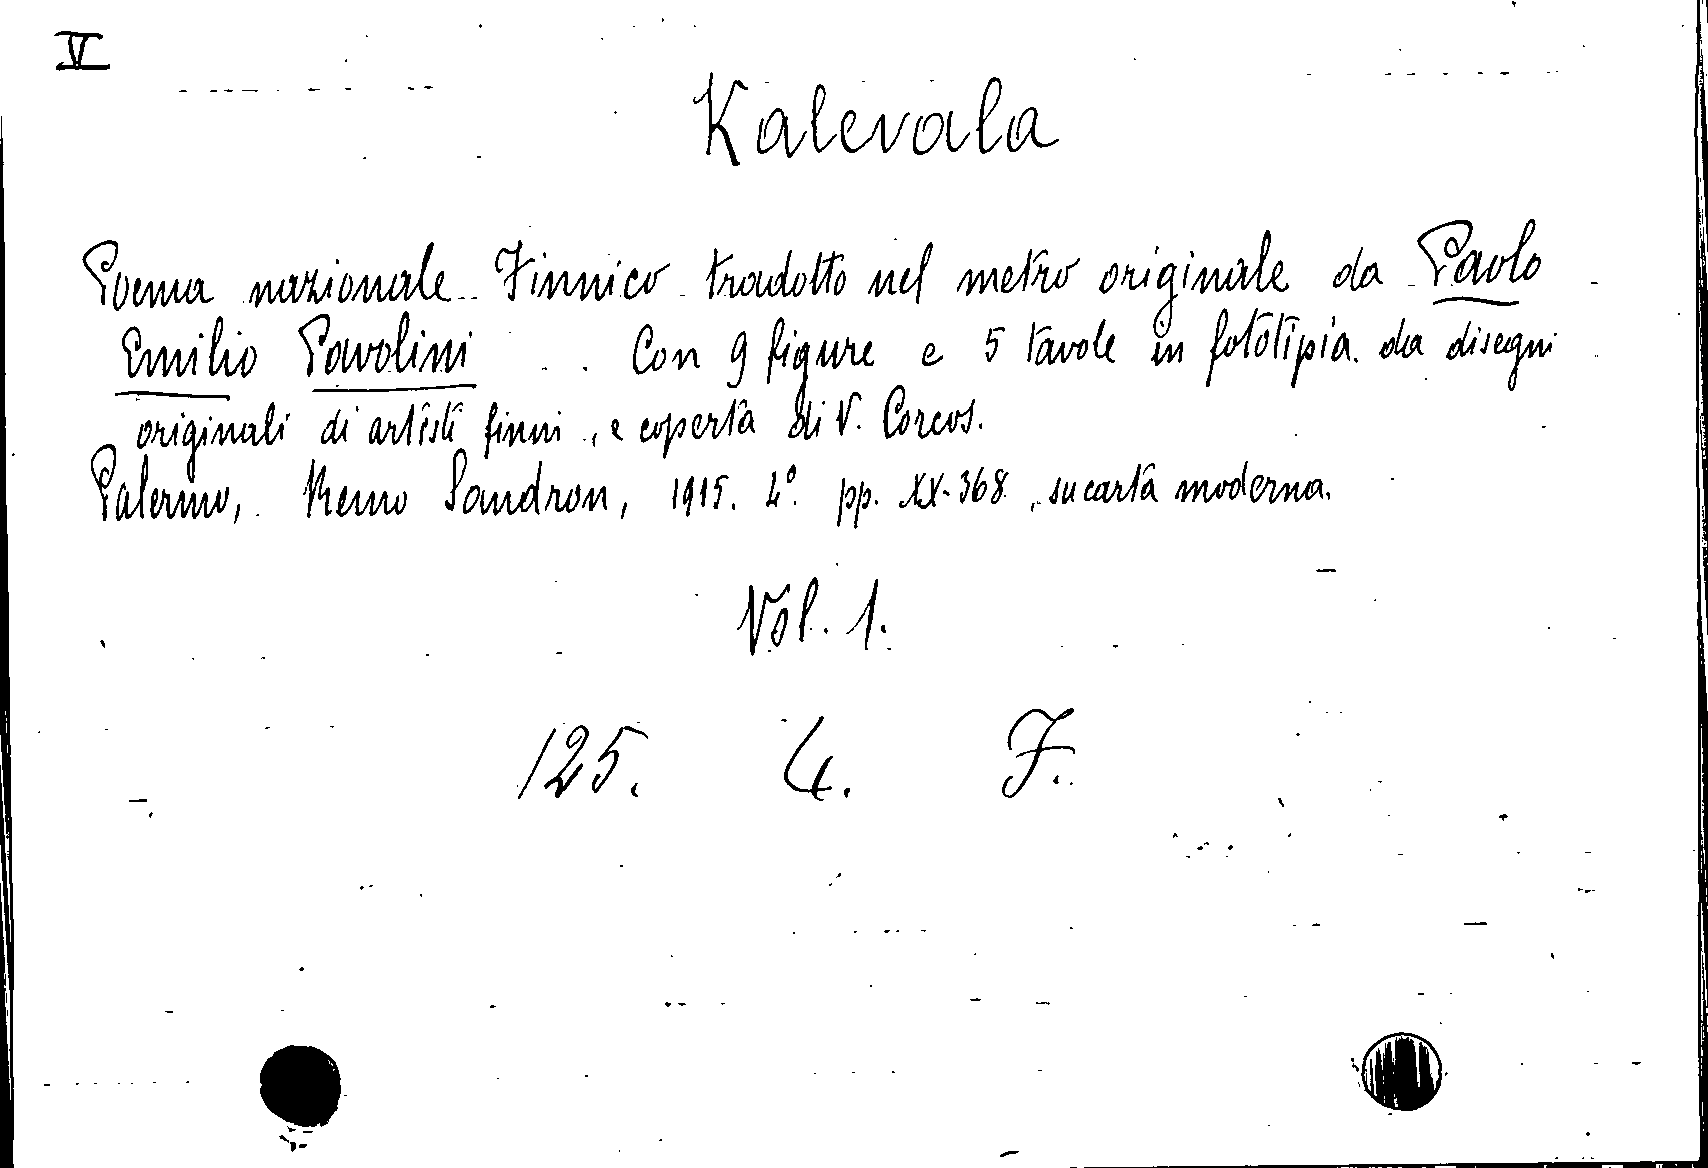 V
Kalevala
Poema nazionale Finnico tradotto nel metro originale da Paolo
Emilio Pavolini . . Con 9 figure e 5 tavole in fototipia da disegni
originali di artisti finni, e coperta di V. Corcos.
Palermo, Remo Sandron, 1915. 4° pp. XX-368, su carta moderna.
Vol. 1.
125. 4. F.